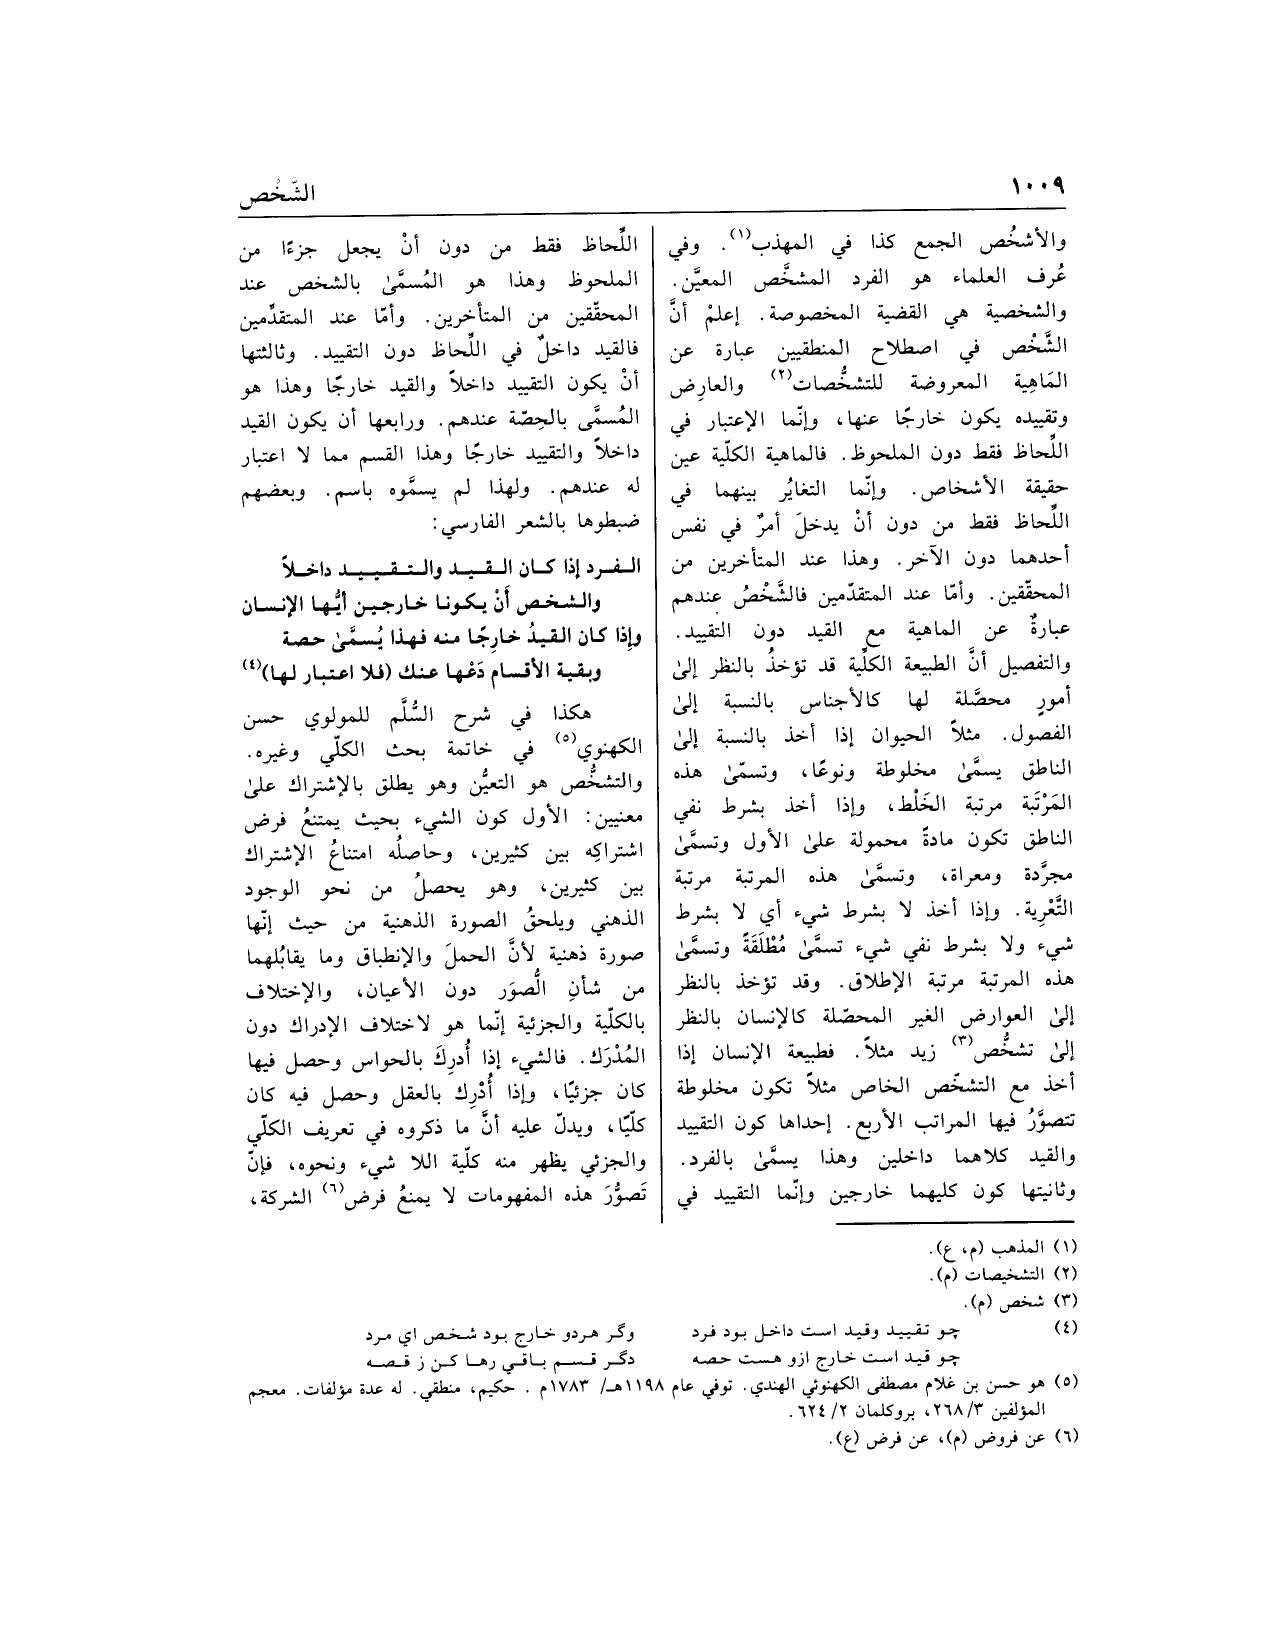 ١٠٠٩
الشَّخْص
والأشخُص الجمع كذا في المهذب(١). وفي
عُرف العلماء هو الفرد المشخَّص المعيَّن.
والشخصية هي القضية المخصوصة. إعلمْ أنَّ
الشَّخْص في اصطلاح المنطقيين عبارة عن
المَاهِية المعروضة للتشخُّصات(٢) والعارِض
وتقييده يكون خارجًا عنها، وإنّما الإعتبار في
اللِّحاظ فقط دون الملحوظ. فالماهية الكلّية عين
حقيقة الأشخاص. وإنّما التغايُر بينهما في
اللِّحاظ فقط من دون أنْ يدخلَ أمرٌ في نفس
أحدهما دون الآخر. وهذا عند المتأخرين من
المحقّقين. وأمّا عند المتقدّمين فالشَّخْصُ عندهم
عبارةٌ عن الماهية مع القيد دون التقييد.
والتفصيل أنَّ الطبيعة الكلّية قد تؤخذُ بالنظر إلىٰ
أمورٍ محصَّلة لها كالأجناس بالنسبة إلىٰ
الفصول. مثلاً الحيوان إذا أخذ بالنسبة إلىٰ
الناطق يسمَّىٰ مخلوطة ونوعًا، وتسمّىٰ هذه
المَرْتَبة مرتبة الخَلْط، وإذا أخذ بشرط نفي
الناطق تكون مادةً محمولة علىٰ الأول وتسمَّىٰ
مجرَّدة ومعراة، وتسمَّىٰ هذه المرتبة مرتبة
التَّعْرِية. وإذا أخذ لا بشرط شيء أي لا بشرط
شيء ولا بشرط نفي شيء تسمَّىٰ مُطْلَقَةً وتسمَّىٰ
هذه المرتبة مرتبة الإطلاق. وقد تؤخذ بالنظر
إلىٰ العوارض الغير المحصّلة كالإنسان بالنظر
إلىٰ تشخُّص(٣) زيد مثلاً. فطبيعة الإنسان إذا
أخذ مع التشخّص الخاص مثلاً تكون مخلوطة
تتصوَّرُ فيها المراتب الأربع. إحداها كون التقييد
والقيد كلاهما داخلين وهذا يسمَّىٰ بالفرد.
وثانيتها كون كليهما خارجين وإنّما التقييد في
اللِّحاظ فقط من دون أنْ يجعل جزءًا من
الملحوظ وهذا هو المُسمَّىٰ بالشخص عند
المحقّقين من المتأخرين. وأمّا عند المتقدِّمين
فالقيد داخلٌ في اللِّحاظ دون التقييد. وثالثتها
أنْ يكون التقييد داخلاً والقيد خارجًا وهذا هو
المُسمَّى بالحِصّة عندهم. ورابعها أن يكون القيد
داخلاً والتقييد خارجًا وهذا القسم مما لا اعتبار
له عندهم. ولهذا لم يسمَّوه باسم. وبعضهم
ضبطوها بالشعر الفارسي:
الفرد إذا كان القيد والتقييد داخلاً
والشخص أَنْ يكونا خارجين أيُّها الإنسان
وإذا كان القيدُ خارِجًا منه فهذا يُسمَّىٰ حصة
وبقية الأقسام دَعْها عنك (فلا اعتبار لها)(٤)
هكذا في شرح السُّلَّم للمولوي حسن
الكهنوي(٥) في خاتمة بحث الكلّي وغيره.
والتشخُّص هو التعيُّن وهو يطلق بالإشتراك علىٰ
معنيين: الأول كون الشيء بحيث يمتنعُ فرض
اشتراكِه بين كثيرين، وحاصلُه امتناعُ الإشتراك
بين كثيرين، وهو يحصلُ من نحو الوجود
الذهني ويلحقُ الصورة الذهنية من حيث إنّها
صورة ذهنية لأنَّ الحملَ والإنطباق وما يقابُلهما
من شأنِ الُّصوَر دون الأعيان، والإختلاف
بالكلّية والجزئية إنّما هو لاختلاف الإدراك دون
المُدْرَك. فالشيء إذا أُدرِكَ بالحواس وحصل فيها
كان جزئيًا، وإذا أُدْرِك بالعقل وحصل فيه كان
كلّيًا، ويدلّ عليه أنَّ ما ذكروه في تعريف الكلّي
والجزئي يظهر منه كلّية اللا شيء ونحوه، فإنّ
تَصوُّرَ هذه المفهومات لا يمنعُ فرض(٦) الشركة،
(١) المذهب (م، ع).
(٢) التشخيصات (م).
(٣) شخص (م).
(٤) چو تقييد وقيد است داخل بود فرد وگر هردو خارج بود شخص اي مرد
چو قيد است خارج ازو هست حصه دگر قسم باقي رها كن ز قصه
(٥) هو حسن بن غلام مصطفى الكهنوئي الهندي. توفي عام ١١٩٨هـ/ ١٧٨٣م . حكيم، منطقي. له عدة مؤلفات. معجم
المؤلفين ٣/ ٢٦٨، بروكلمان ٢/ ٦٢٤.
(٦) عن فروض (م)، عن فرض (ع).